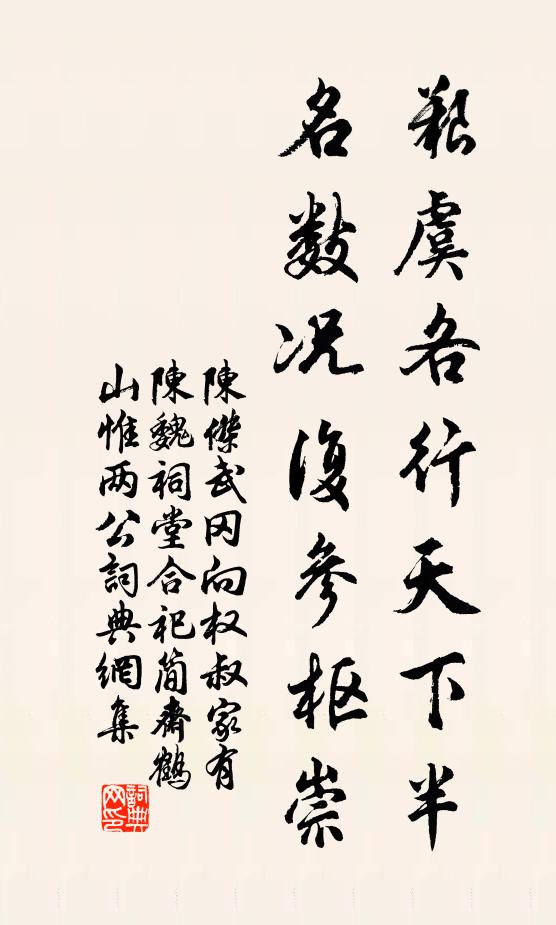 艱虞各行天下半
名数况復參枢崇
陳傑武冈向权叔家有
陳魏祠堂合祀简齋鶴
山惟两公詞典網集
詞典网印